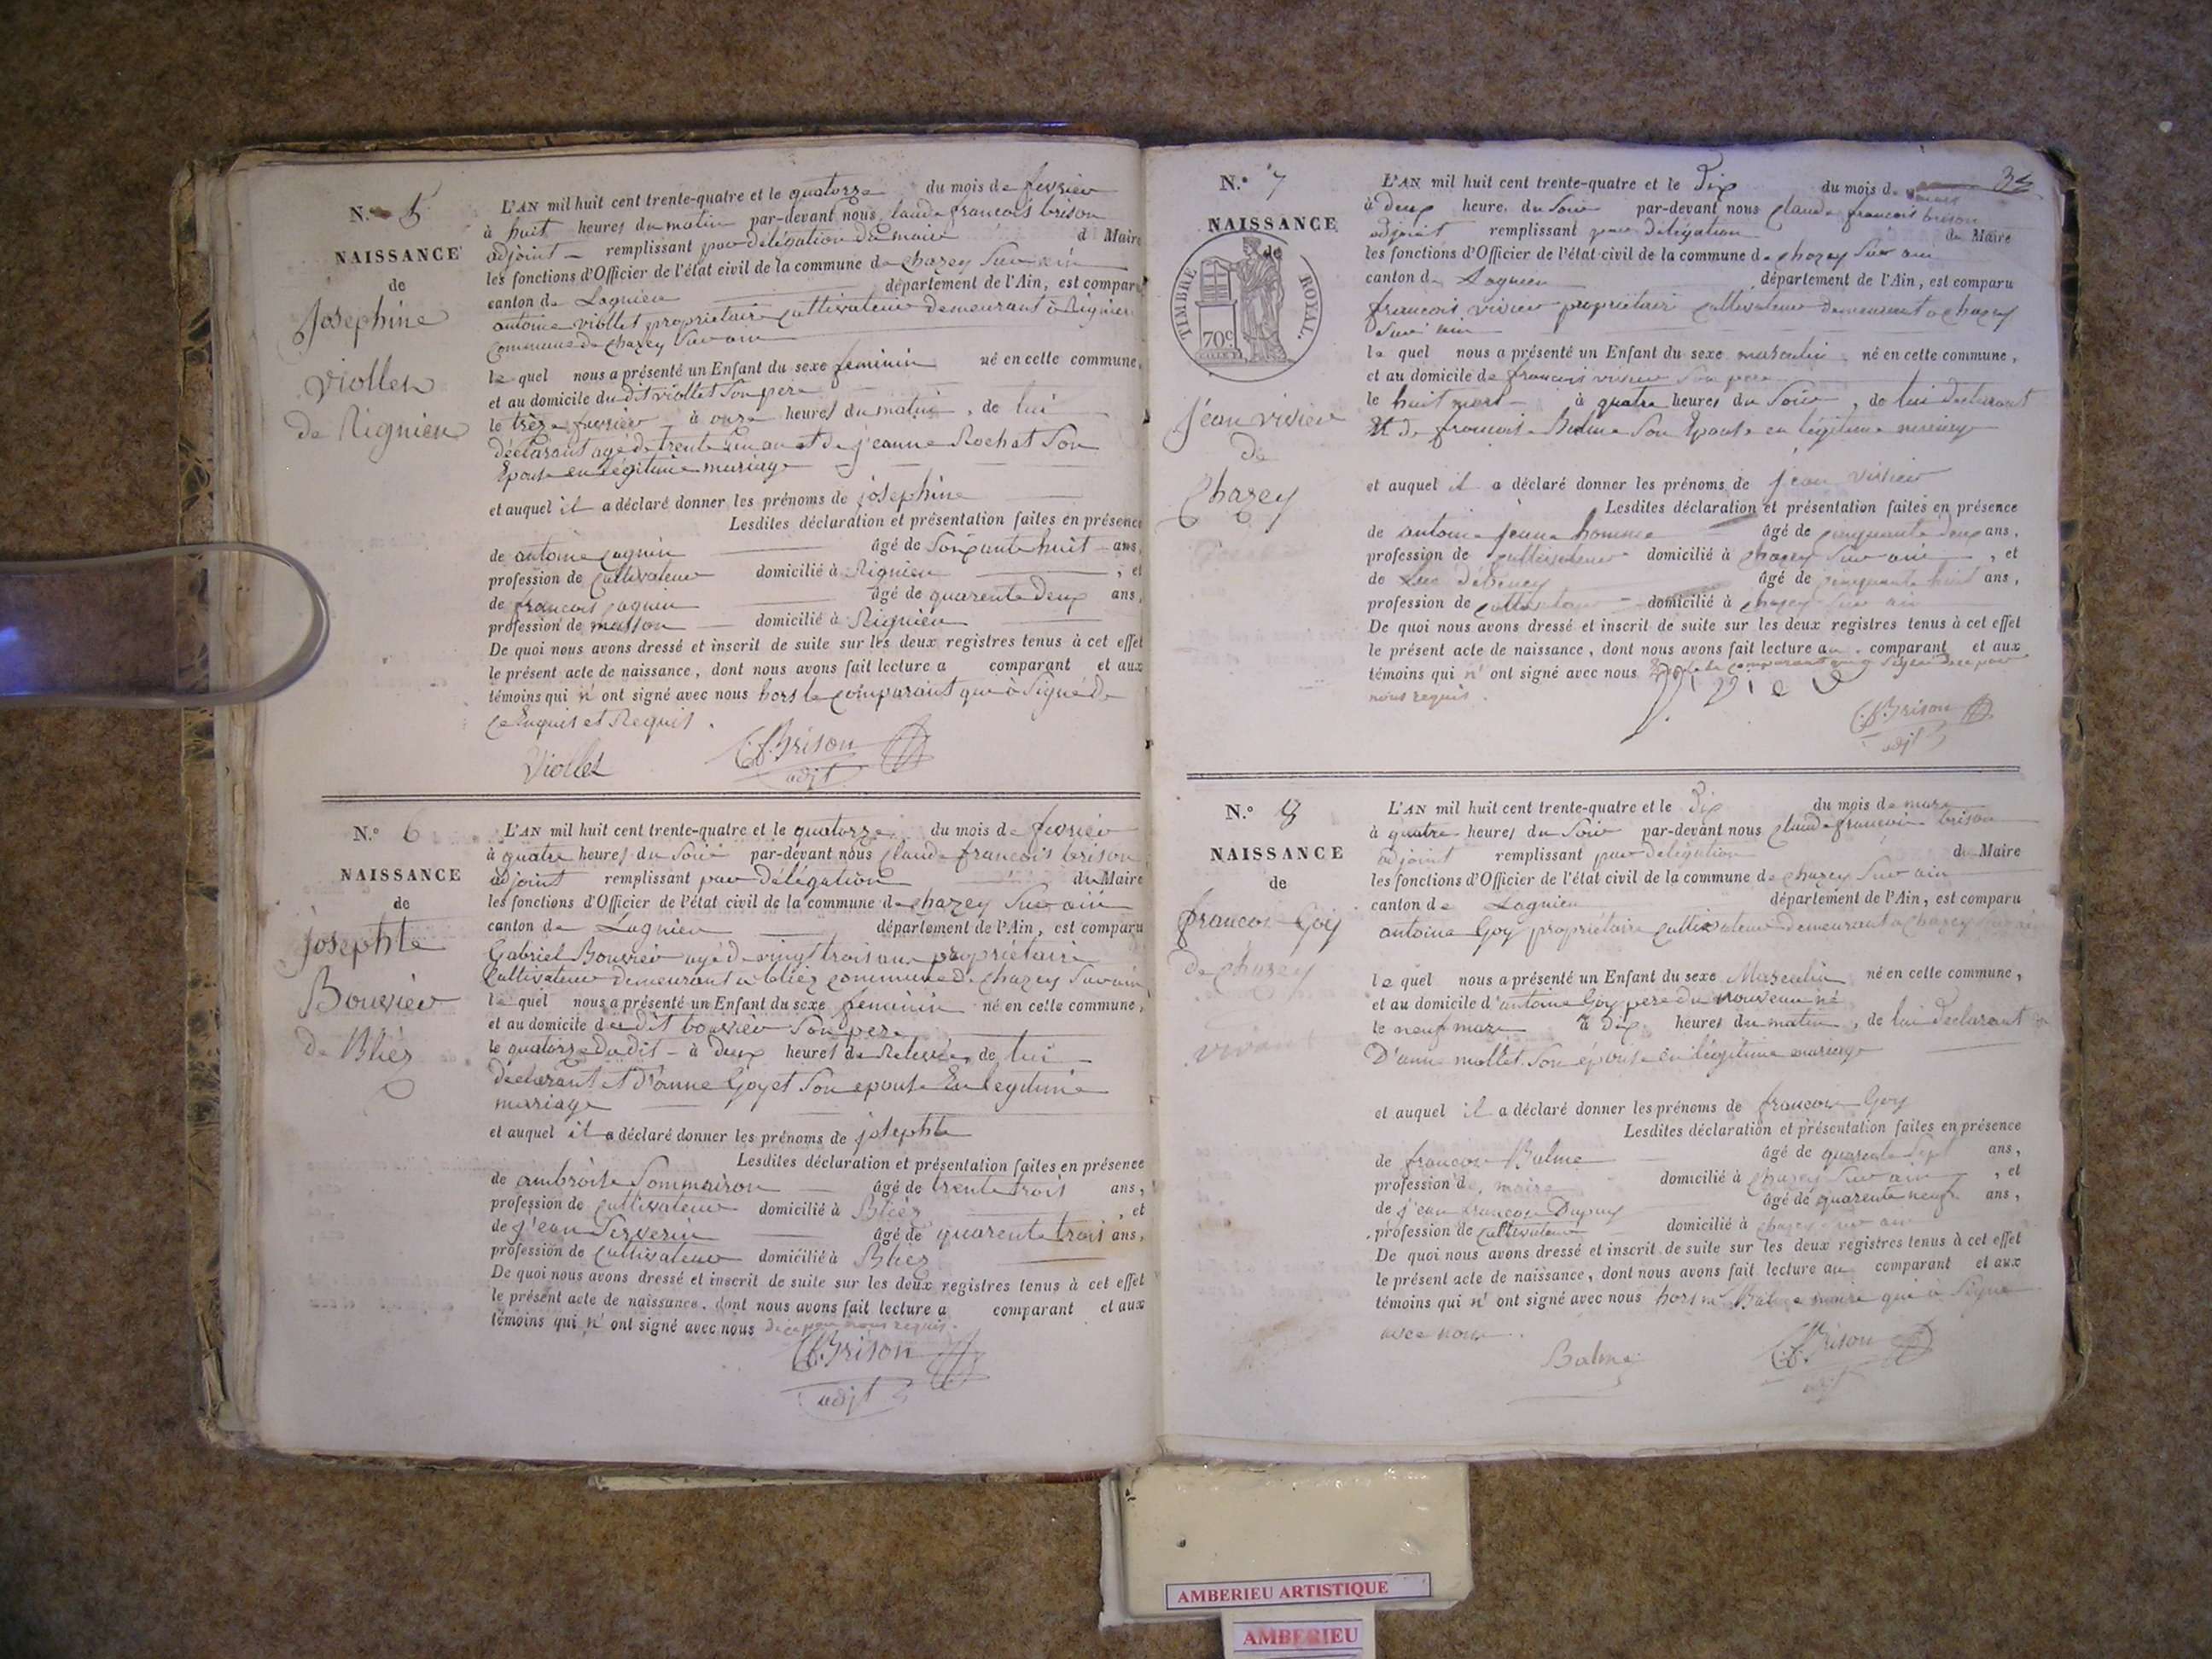 N.º 5
NAISSANCE
de
Josephine
Viollet
de Rignieu
L'AN mil huit cent trente-quatre et le quatorze du mois de fevrier
à huit heures du matin par-devant nous claude francois brison
adjoint remplissant par délégation du maire d Maire
les fonctions d'Officier de l'état civil de la commune de chazey Sur ain
canton de Lagnieu département de l'Ain, est comparu
antoine viollet propriétaire cultivateur demeurant à Rignieu
commune de chazey Sur ain
le quel nous a présenté un Enfant du sexe feminin né en cette commune,
et au domicile du dit viollet Son pere
le trèze fevrier à onze heures du matin, de lui
déclarant agé de trente un an et de jeanne Rochat Son
Epouse en légitime mariage
et auquel il a déclaré donner les prénoms de josephine
Lesdites déclaration et présentation faites en présence
de antoine âgé de Soixante huit ans,
profession de cultivateur domicilié à Rignieu, et
de francois âgé de quarente deux ans,
profession de masson domicilié à Rignieu
De quoi nous avons dressé et inscrit de suite sur les deux registres tenus à cet effet
le présent acte de naissance, dont nous avons fait lecture a comparant et aux
témoins qui n'ont signé avec nous hors le comparant que à Signé de
ce Enquis et Requis.
Viollet C.f. Brison
adjt
N.º 6
NAISSANCE
de
Josephte
Bouvier
de Bliez
L'AN mil huit cent trente-quatre et le quatorze du mois de fevrier
à quatre heures du Soir par-devant nous claude francois brison
adjoint remplissant par délégation du Maire
les fonctions d'Officier de l'état civil de la commune de chazey Sur ain
canton de Lagnieu département de l'Ain, est comparu
Gabriel Bouvier agé de vingt trois ans propriétaire
Cultivateur demeurant a bliez commune de chazey Sur ain
le quel nous a présenté un Enfant du sexe feminin né en cette commune,
et au domicile du dit bouvier Son pere
le quatorze du dit à deux heures de Relevée, de lui
déclarant et d'anne Goyet Son epouse En legitime
mariage
et auquel il a déclaré donner les prénoms de josephte
Lesdites déclaration et présentation faites en présence
de ambroise Sommairon âgé de trente trois ans,
profession de cultivateur domicilié à Bliez, et
de jean âgé de quarente trois ans,
profession de cultivateur domicilié à Bliez
De quoi nous avons dressé et inscrit de suite sur les deux registres tenus à cet effet
le présent acte de naissance, dont nous avons fait lecture a comparant et aux
témoins qui n'ont signé avec nous de ce par nous requis.
C.f. Brison
adjt
35
N.º 7
NAISSANCE
de
TIMBRE ROYAL.
70c
jean vivier
de
Chazey
L'AN mil huit cent trente-quatre et le Dix du mois de mars
à deux heure du Soir par-devant nous claude francois brison
adjoint remplissant par délégation du Maire
les fonctions d'Officier de l'état civil de la commune de chazey Sur ain
canton de Lagnieu département de l'Ain, est comparu
francois vivier propriétaire cultivateur demeurant a chazey
Sur ain
le quel nous a présenté un Enfant du sexe masculin né en cette commune,
et au domicile de francois vivier Son pere
le huit mars à quatre heures du Soir, de lui déclarant
Et de francoise Balme Son Epouse en légitime mariage
et auquel il a déclaré donner les prénoms de jean vivier
Lesdites déclaration et présentation faites en présence
de antoine jeune homme âgé de cinquante deux ans,
profession de cultivateur domicilié à chazey Sur ain, et
de Luc âgé de cinquante huit ans,
profession de cultivateur domicilié à chazey Sur ain
De quoi nous avons dressé et inscrit de suite sur les deux registres tenus à cet effet
le présent acte de naissance, dont nous avons fait lecture au comparant et aux
témoins qui n'ont signé avec nous le comparant Signé de ce par
nous requis.
C.f. Brison
adjt
N.º 8
NAISSANCE
de
francois Goy
de chazey
vivant
L'AN mil huit cent trente-quatre et le Dix du mois de mars
à quatre heures du Soir par-devant nous claude francois brison
adjoint remplissant par délégation du Maire
les fonctions d'Officier de l'état civil de la commune de chazey Sur ain
canton de Lagnieu département de l'Ain, est comparu
antoine Goy propriétaire cultivateur demeurant a chazey Sur ain
le quel nous a présenté un Enfant du sexe Masculin né en cette commune,
et au domicile d'antoine Goy pere du nouveau né
le neuf mars à Dix heures du matin, de lui declarant
D'anne mollet Son épouse en légitime mariage
et auquel il a déclaré donner les prénoms de francois Goy
Lesdites déclaration et présentation faites en présence
de francois Balme âgé de quarente Sept ans,
profession d maire domicilié à chazey Sur ain, et
de jean francois Dupuy âgé de quarente neuf ans,
profession de cultivateur domicilié à chazey Sur ain
De quoi nous avons dressé et inscrit de suite sur les deux registres tenus à cet effet
le présent acte de naissance, dont nous avons fait lecture au comparant et aux
témoins qui n'ont signé avec nous hors mr Balme maire qui à Signé
avec nous.
Balme C.f. Brison
adjt
AMBERIEU ARTISTIQUE
AMBERIEU